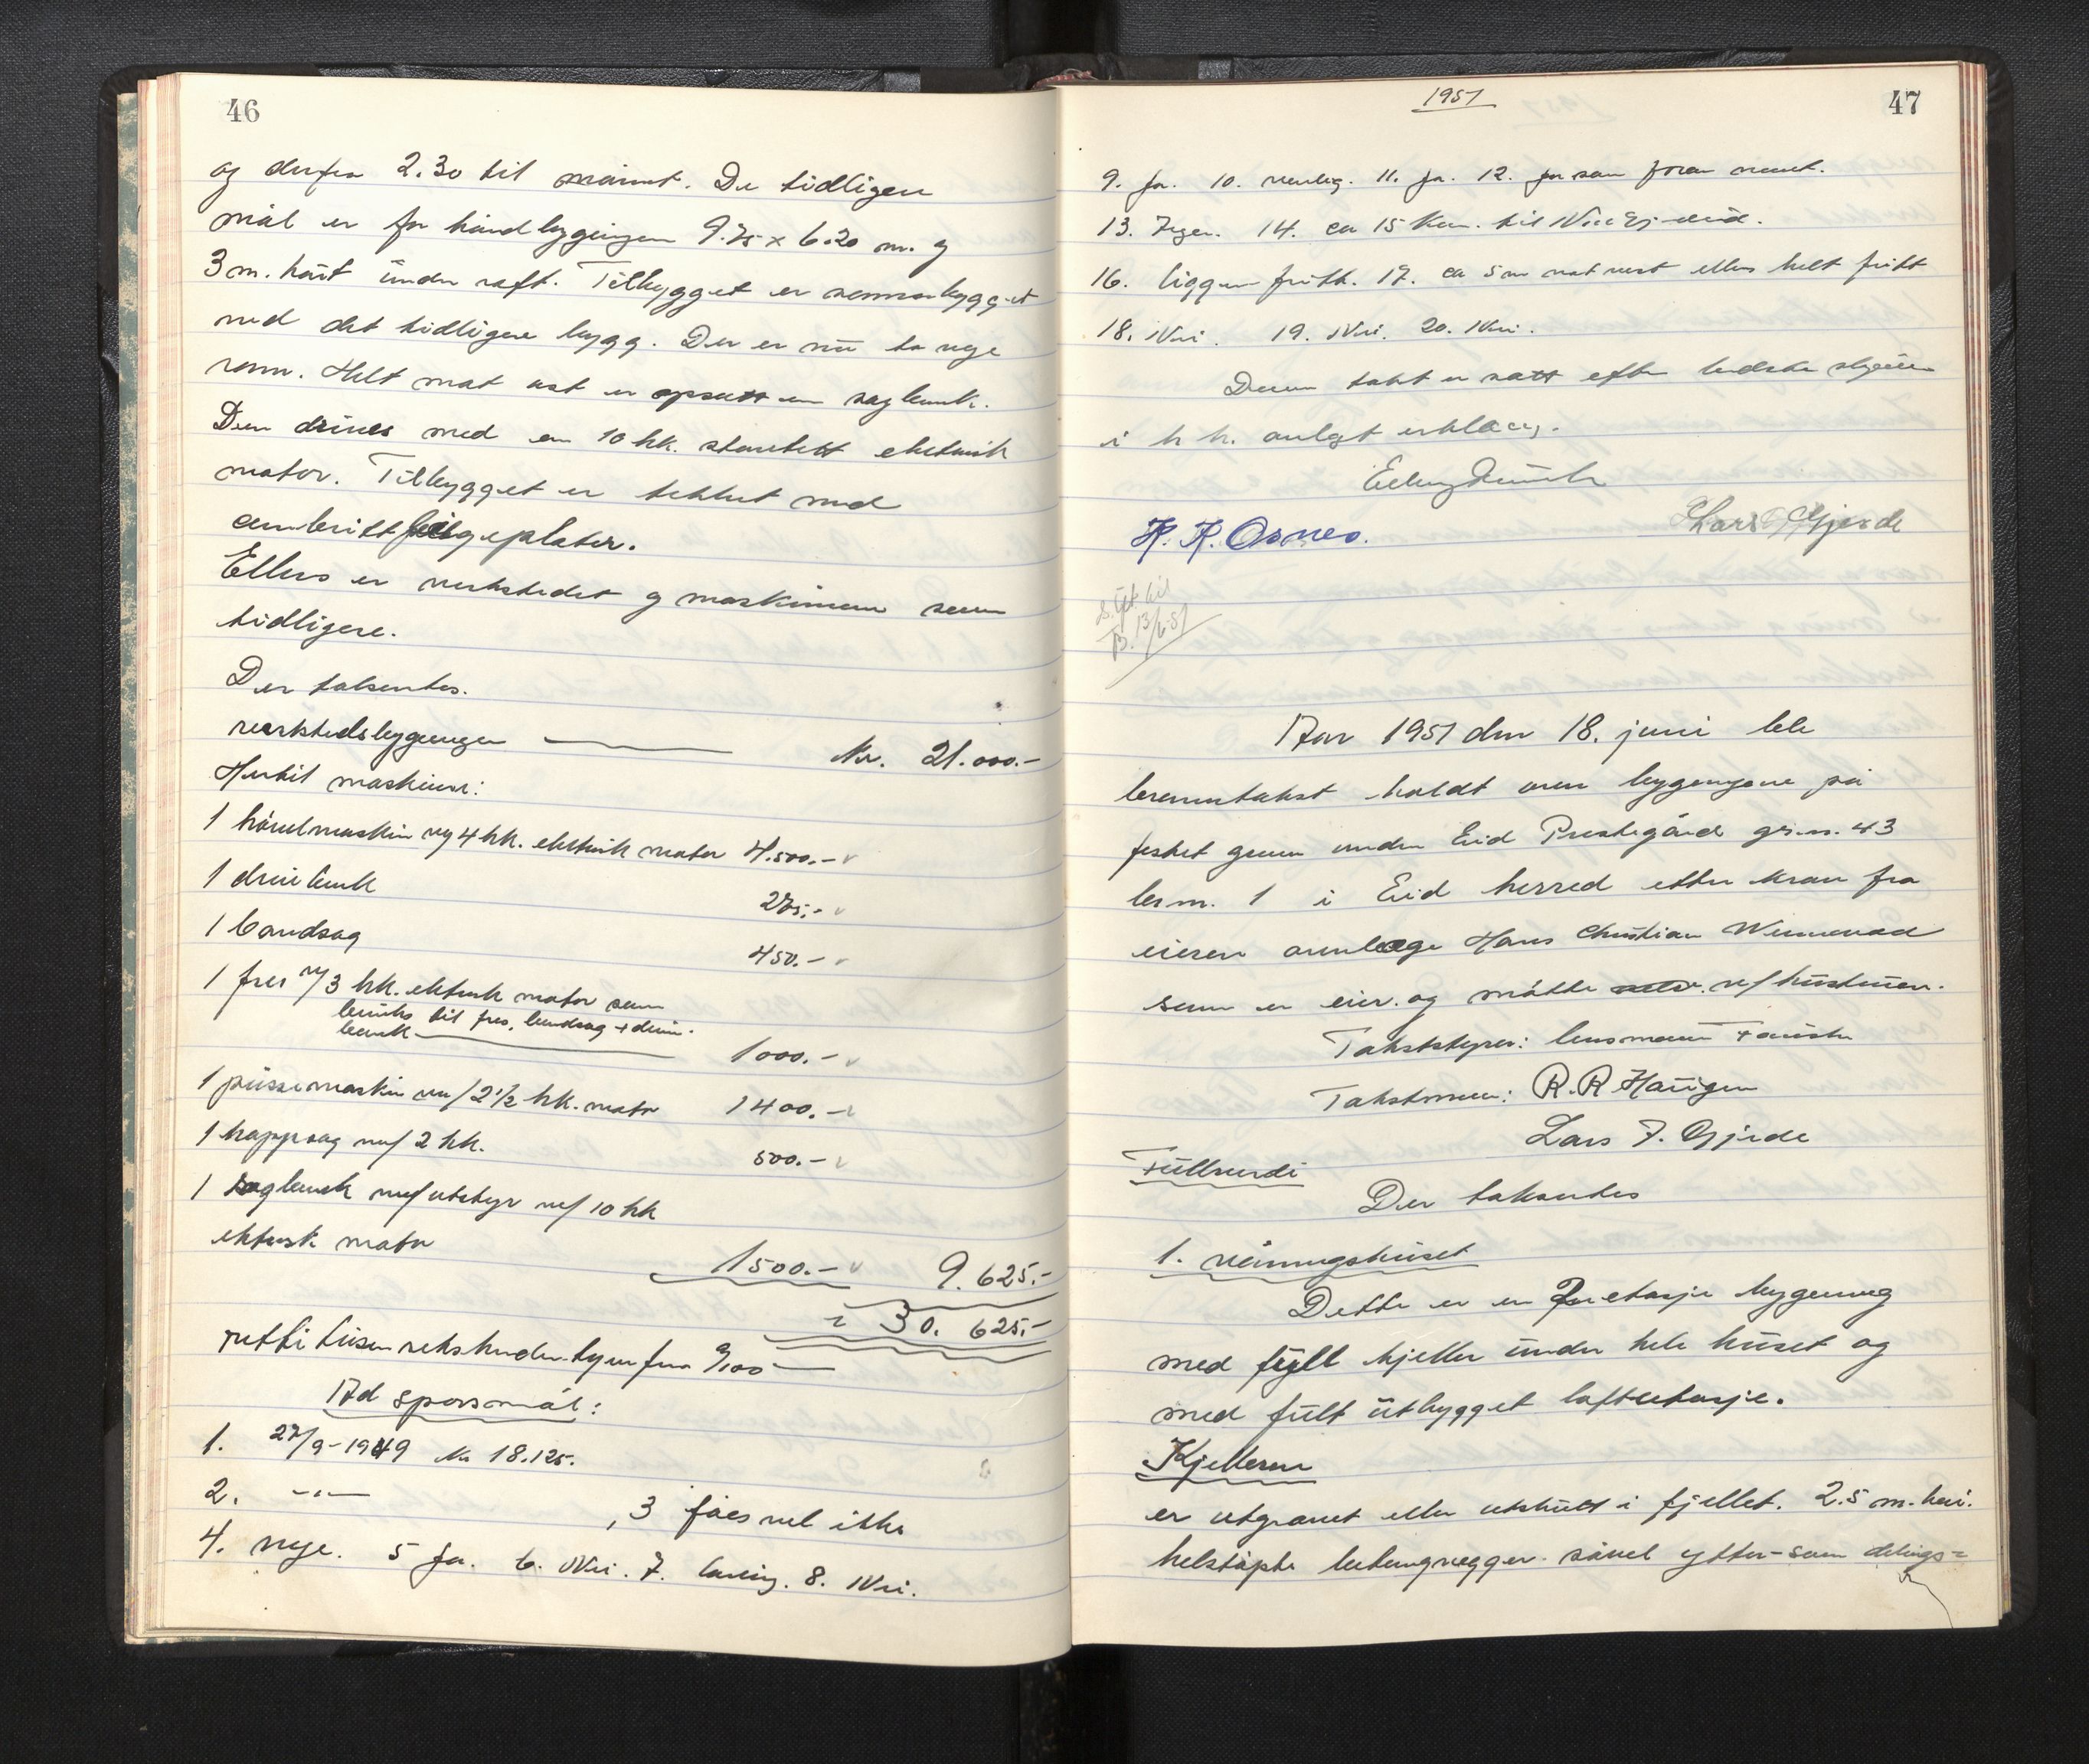 46
og derfra 2.30 til mønet. De tidligere
mål er for håndbyggingen 9.75 x 6.20 m. og
3 m. høit under raft. Tilbygget er sammenbygget
med det tidligere bygg. Der er nu to nye
rom. Helt mot ost er opsatt en sagbenk.
Den drives med en 10 hk. elektrisk
motor. Tilbygget er tekket med
bølgeplater.
Ellers er verkstedet og maskinene som
tidligere.
Der takseres.
verkstedsbyggingen Kr. 21.000.-
Hertil maskiner:
1 høvelmaskin m/4 hk. elektrisk motor 4.500.-
1 dreiebenk 275.-
1 bandsag 450.-
1 fres m/3 hk. elektrisk motor som
brukes til fres, bandsag + dreie-
benk 1000.-
1 pussemaskin m/2½ hk. motor 1400.-
1 kappsag m/2 hk. 500.-
1 sagbenk m/utstyr m/10 hk
elektrisk motor 1500.- 9.625.-
30.625.-
retti tusen sekshundre tyve fem 0/100
Ad spørsmål:
1. 27/9-1949 kr 18.125.
2. -"- , 3 fåes vel ikke
4. nye. 5 ja. 6. Nei. 7. 8. Nei.
1951
47
9. ja. 10. vanlig. 11. ja. 12. ja som foran nevnt.
13. Ingen. 14. ca 15 km. til Nordfjordeid.
16. ligger fritt. 17. ca 5 m mot vest ellers helt fritt
18. Nei. 19. Nei. 20. Nei.
Denne takst er satt efter bedste skjønn
i h. h. avlagt erklæring.
K. K. Osnes. Lars Gjerde
13/6-51
Aar 1951 den 18. juni ble
branntakst holdt over bygningene på
festet grunn under Eid Prestegård gr.nr. 43
br.nr. 1 i Eid herred etter krav fra
eieren Hans Christian
som er eier og møtte v/ hustruen.
Takststyrer: lensmann
Takstmenn: R. R Haugen
Lars J. Gjerde
Fullverdi
Der takseres
1. våningshuset
Dette er en etasje bygning
med full kjeller under hele huset og
med fult utbygget loftsetasje.
Kjelleren
er utgravet eller utskutt i fjellet. 2.5 m. høi.
helstøpte betongvegger såvel ytter- som delings-